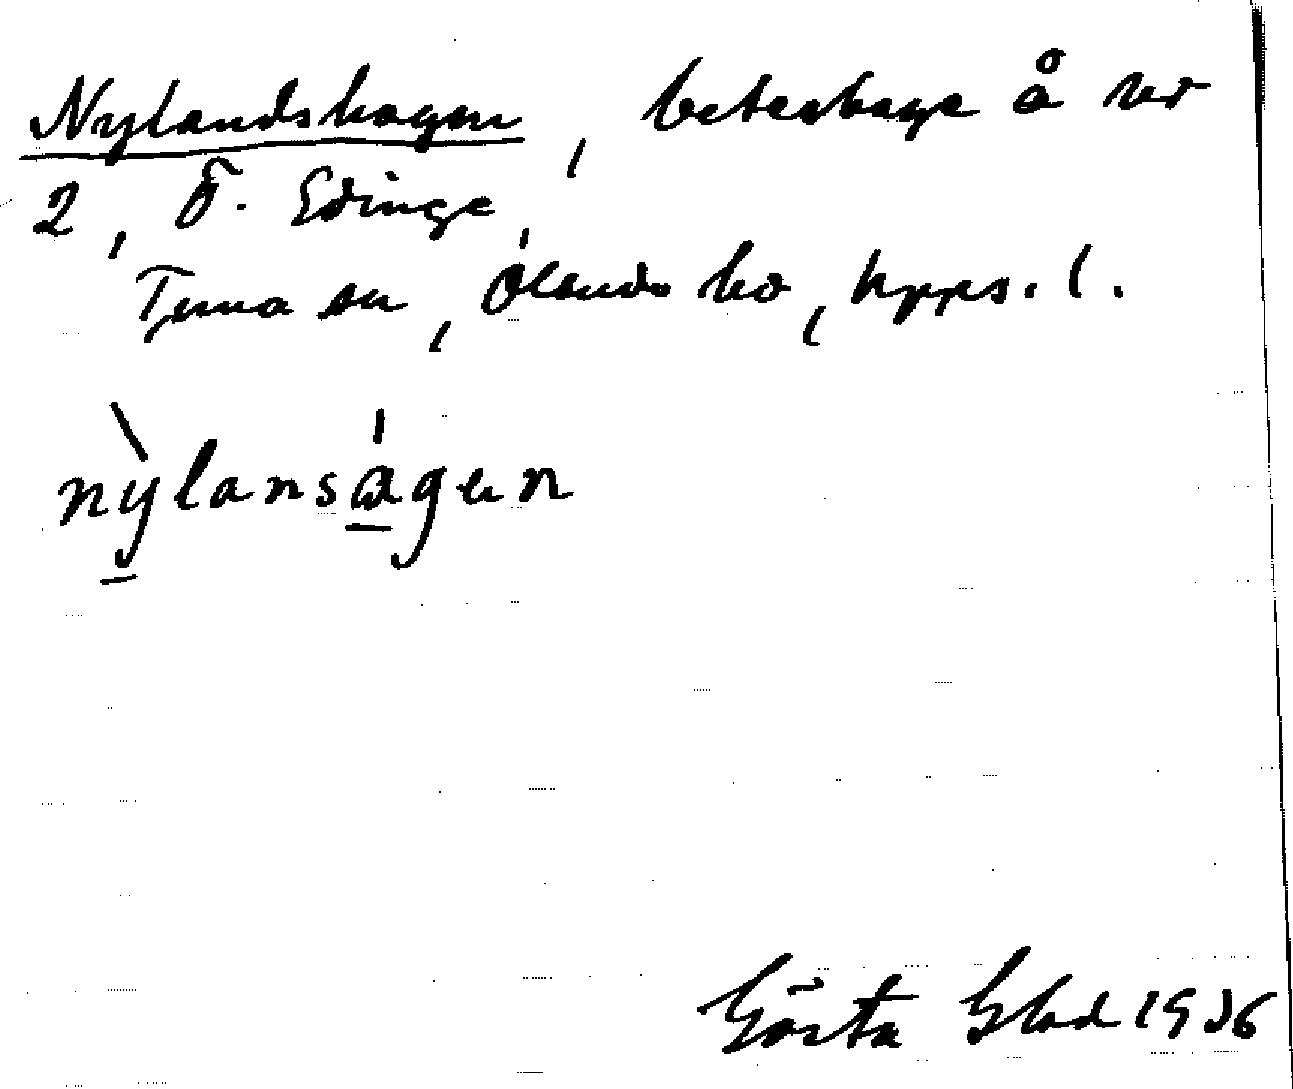 Nylandshagen, beteshage å nr
2, Ö. Edinge,
Tuna sn, Ölands hd, Upps. l.
nỳlanságen
Gösta Blad 1936